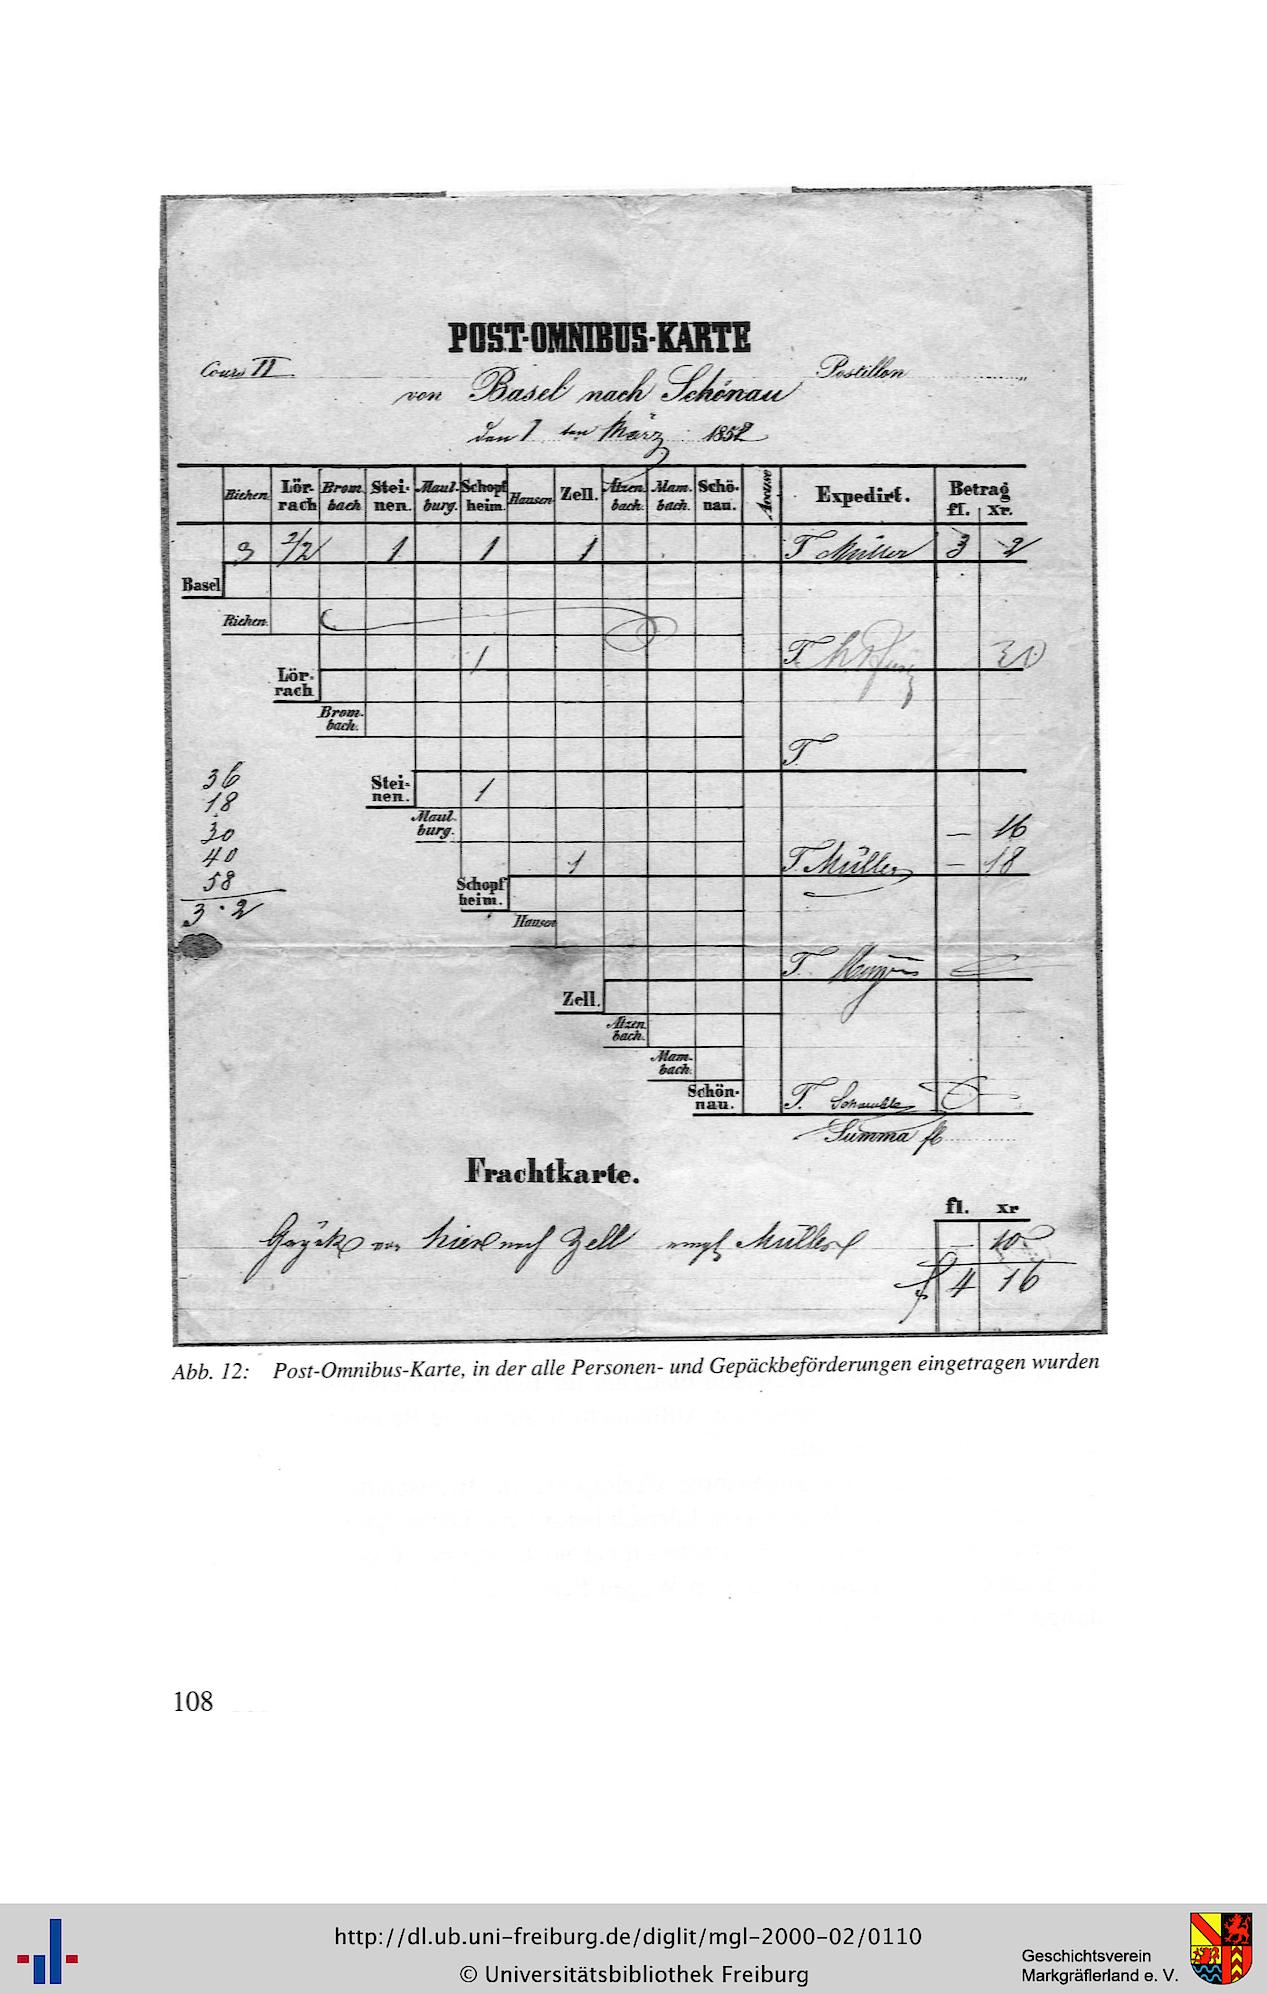 POST-OMNIBUS-KARTE
Cours II
Postillon
von Basel nach Schönau
den 1 ten März 1852
Riehen. Lör-rach Brom-bach Stei-nen. Maul-burg. Schopf-heim. Hausen Zell. Atzen-bach. Mam-bach. Schö-nau. Accuse Expedirt. Betrag fl. xr.
3 2/2 1 1 1 T Müller 3 2
Basel
Riehen.
1 T. 30
Lör-rach
Brom-bach.
T.
Stei-nen. 1
Maul-burg.
— 16
1 T. Müller — 18
Schopf-heim.
Hausen
T.
Zell.
Atzen-bach.
Mam-bach.
Schön-nau. T.
Summa fl.
36
18
30
40
58
3 . 2
Frachtkarte.
fl. xr
Gepäck von hier nach Zell Müller — 10
f 4 16
Abb. 12: Post-Omnibus-Karte, in der alle Personen- und Gepäckbeförderungen eingetragen wurden
108
http://dl.ub.uni-freiburg.de/diglit/mgl-2000-02/0110
© Universitätsbibliothek Freiburg
Geschichtsverein
Markgräflerland e. V.